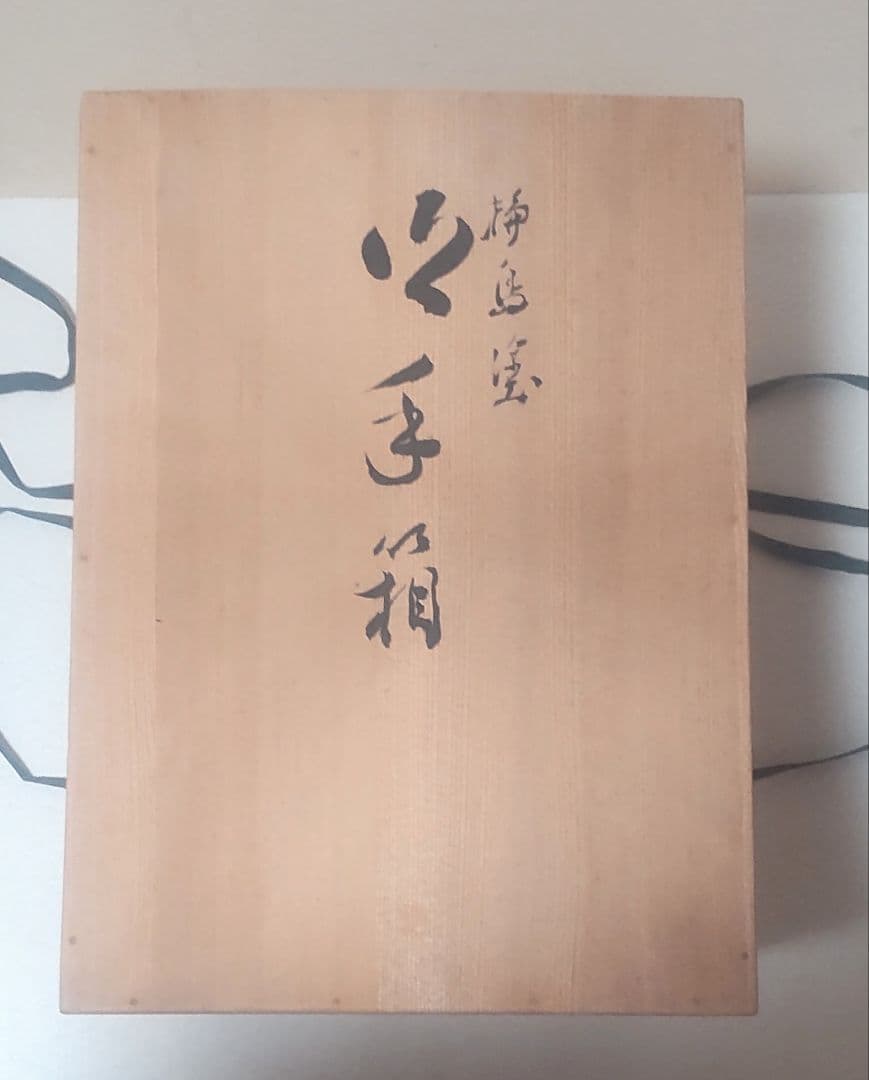 輪島塗
御手箱